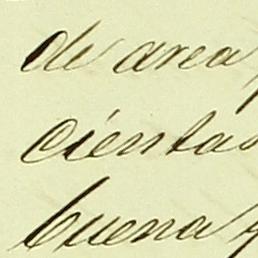 de area,
cientas
buena y